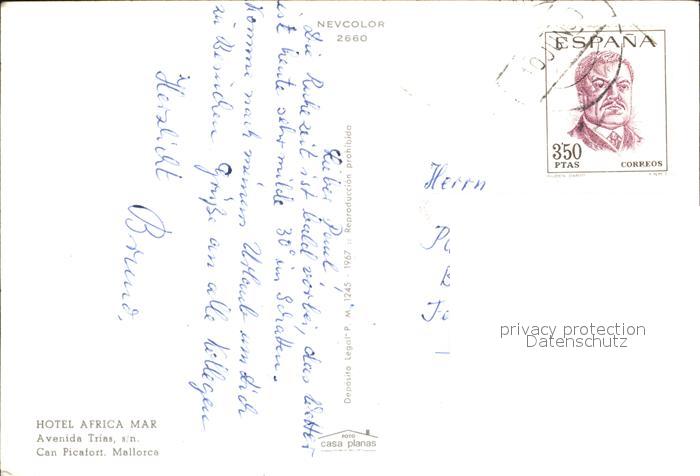 NEVCOLOR
2660
ESPAÑA
3'50
PTAS
CORREOS
RUBEN DARIO
F.N.M.T.
Lieber Paul,
Die Ruhezeit ist bald vorbei, das Wetter
ist heute sehr milde 30° im Schatten.
Komme nach meinem Urlaub um Dich
zu Besuchen Grüße an alle Kollegen
Herzlichst
Bruno,
Depósito Legal P. M. 1245 - 1967 :: Reproducción prohibida
FOTO
casa planas
Herrn
privacy protection
Datenschutz
HOTEL AFRICA MAR
Avenida Trías, s/n.
Can Picafort. Mallorca